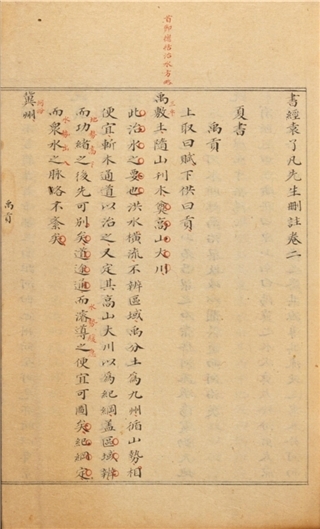 書經袁了凡先生刪註卷二
夏書
禹貢
上取曰賦下供曰貢
禹敷土隨山刊木奠高山大川
此治水之要也洪水橫流不辨區域禹分土為九州循山勢相
便宜斬木通道以治之又定其高山大川以為紀綱蓋區域辨
而功緒之後先可別矣道途通而濬導之便宜可圖矣紀綱定
而眾水之脉絡不紊矣
冀州
禹貢